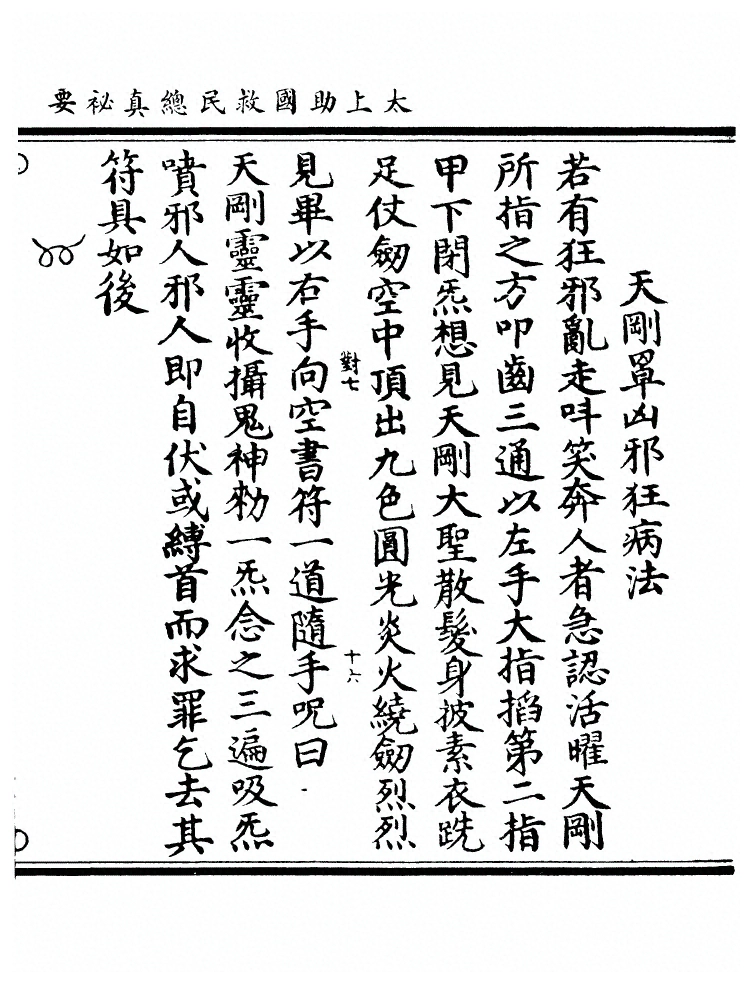 太上助國救民總真祕要
天剛罩凶邪狂病法
若有狂邪亂走呌笑奔人者急認活曜天剛
所指之方叩齒三通以左手大指搯第二指
甲下閉炁想見天剛大聖散髮身被素衣跣
足仗劒空中頂出九色圓光炎火繞劒烈烈
對七
十六
見畢以右手向空書符一道隨手呪曰
天剛靈靈收攝鬼神勑一炁念之三遍吸炁
噴邪人邪人即自伏或縛首而求罪乞去其
符具如後